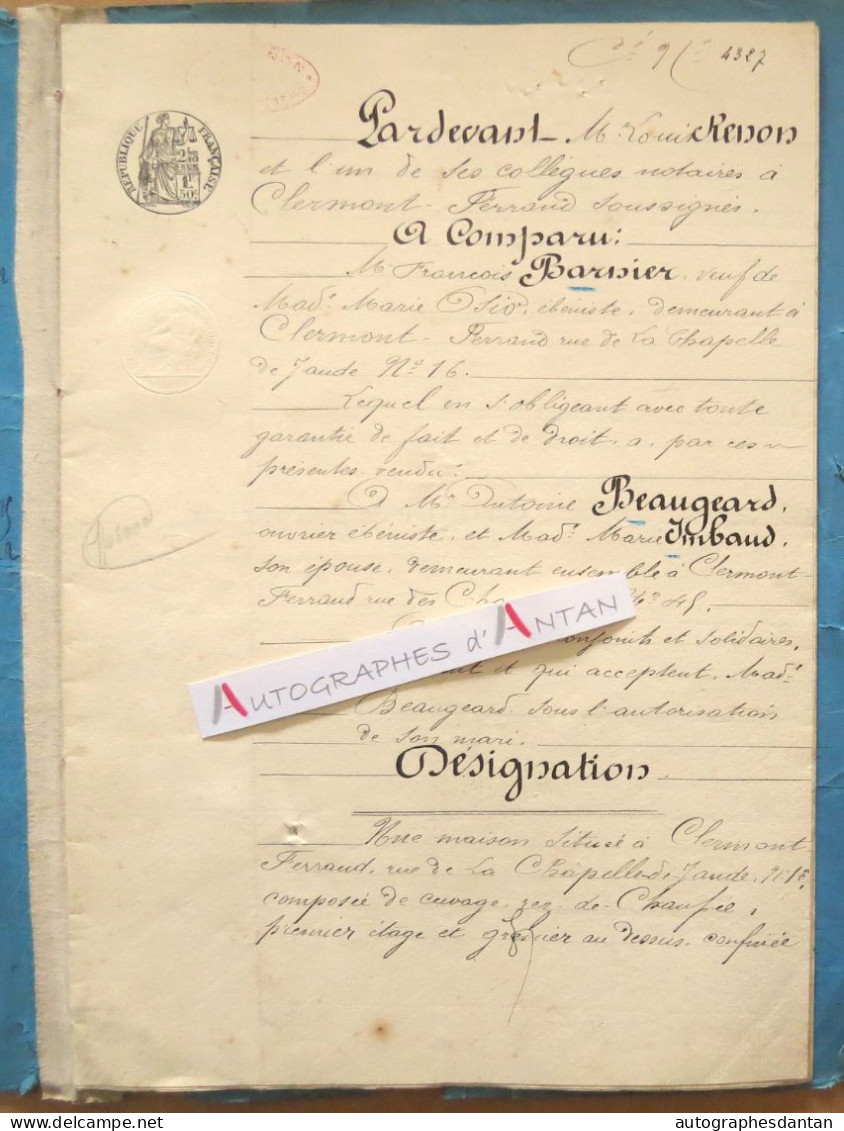 4327
RÉPUBLIQUE FRANÇAISE
1F
50c
Pardevant Me Louis Renon
et l'un de ses collègues notaires à
Clermont-Ferrand soussignés.
A Comparu:
Mr François Barnier, veuf de
Made Marie Osio, ébéniste, demeurant à
Clermont-Ferrand rue de La Chapelle
de Jaude No 16.
Lequel en s'obligeant avec toute
garantie de fait et de droit, a, par ces
présentes vendu:
A Mr Antoine Beaugeard,
ouvrier ébéniste, et Made Marie Imbaud,
son épouse, demeurant ensemble à Clermont-
Ferrand rue des No 45.
conjoints et solidaires,
et qui acceptent, Made
Beaugeard sous l'autorisation
de son mari.
Désignation
Une maison située à Clermont-
Ferrand, rue de La Chapelle de Jaude, No 16,
composée de cuvage, rez-de-Chaussée,
premier étage et grenier au dessus, confinée
AUTOGRAPHES d'ANTAN
delcampe.net
autographesdantan